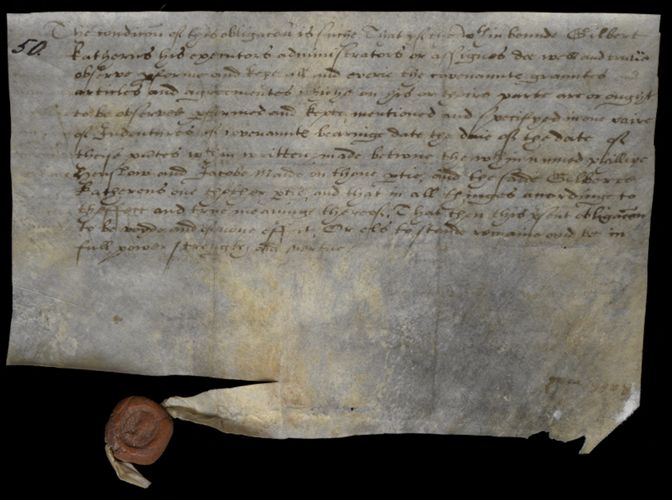 50.
The condicion of this obligacon is suche That yf the wthin bounde Gilbert
Katherens his executors administrators or assignes doe well and trulie
observe pforme and kepe all and everie the covenaunte grauntes
articles and agreementes whiche on his or theire parte are or ought
to be observed pformed and kepte mentioned and specifyed in one paire
of Indentures of covenaunte bearinge date the daie of the date of
theise pntes wthin written made betwne the wthin named phillipe
Henslow and Jacobe Maide on thone ptie, and the saide Gilberte
Katherens one thother ptie, and that in all thinges accordinge to
theffect and true meaninge thereof. That then this psent obligacon
to be voyde and of none effect, Or els to stande remaine and be in
full power strengthe and vertue